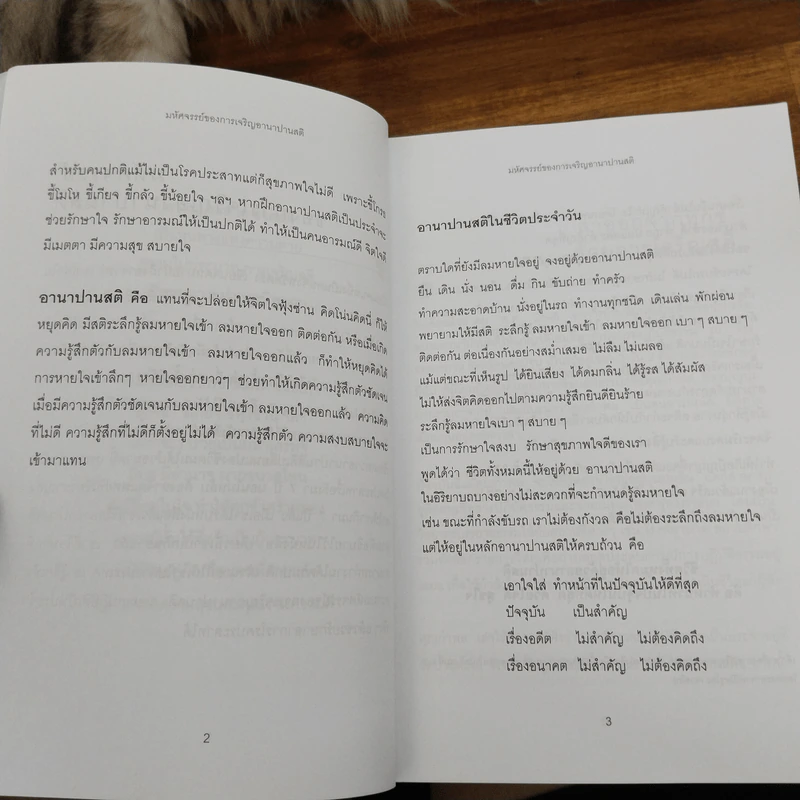 มหัศจรรย์ของการเจริญอานาปานสติ
สำหรับคนปกติแม้ไม่เป็นโรคประสาทแต่ก็สุขภาพใจไม่ดี เพราะขี้โกรธ
ขี้โมโห ขี้เกียจ ขี้กลัว ขี้น้อยใจ ฯลฯ หากฝึกอานาปานสติเป็นประจำจะ
ช่วยรักษาใจ รักษาอารมณ์ให้เป็นปกติได้ ทำให้เป็นคนอารมณ์ดี จิตใจดี
มีเมตตา มีความสุข สบายใจ
อานาปานสติ คือ แทนที่จะปล่อยให้จิตใจฟุ้งซ่าน คิดโน่นคิดนี่ ก็ให้
หยุดคิด มีสติระลึกรู้ลมหายใจเข้า ลมหายใจออก ติดต่อกัน หรือเมื่อเกิด
ความรู้สึกตัวกับลมหายใจเข้า ลมหายใจออกแล้ว ก็ทำให้หยุดคิดได้
การหายใจเข้าลึกๆ หายใจออกยาวๆ ช่วยทำให้เกิดความรู้สึกตัวชัดเจน
เมื่อมีความรู้สึกตัวชัดเจนกับลมหายใจเข้า ลมหายใจออกแล้ว ความคิด
ที่ไม่ดี ความรู้สึกที่ไม่ดีก็ตั้งอยู่ไม่ได้ ความรู้สึกตัว ความสงบสบายใจจะ
เข้ามาแทน
2
มหัศจรรย์ของการเจริญอานาปานสติ
อานาปานสติในชีวิตประจำวัน
ตราบใดที่ยังมีลมหายใจอยู่ จงอยู่ด้วยอานาปานสติ
ยืน เดิน นั่ง นอน ดื่ม กิน ขับถ่าย ทำครัว
ทำความสะอาดบ้าน นั่งอยู่ในรถ ทำงานทุกชนิด เดินเล่น พักผ่อน
พยายามให้มีสติ ระลึกรู้ ลมหายใจเข้า ลมหายใจออก เบา ๆ สบาย ๆ
ติดต่อกัน ต่อเนื่องกันอย่างสม่ำเสมอ ไม่ลืม ไม่เผลอ
แม้แต่ขณะที่เห็นรูป ได้ยินเสียง ได้ดมกลิ่น ได้รู้รส ได้สัมผัส
ไม่ให้ส่งจิตคิดออกไปตามความรู้สึกยินดียินร้าย
ระลึกรู้ลมหายใจเบา ๆ สบาย ๆ
เป็นการรักษาใจสงบ รักษาสุขภาพใจดีของเรา
พูดได้ว่า ชีวิตทั้งหมดนี้ให้อยู่ด้วย อานาปานสติ
ในอิริยาบถบางอย่างไม่สะดวกที่จะกำหนดรู้ลมหายใจ
เช่น ขณะที่กำลังขับรถ เราไม่ต้องกังวล คือไม่ต้องระลึกถึงลมหายใจ
แต่ให้อยู่ในหลักอานาปานสติให้ครบถ้วน คือ
เอาใจใส่ ทำหน้าที่ในปัจจุบันให้ดีที่สุด
ปัจจุบัน เป็นสำคัญ
เรื่องอดีต ไม่สำคัญ ไม่ต้องคิดถึง
เรื่องอนาคต ไม่สำคัญ ไม่ต้องคิดถึง
3